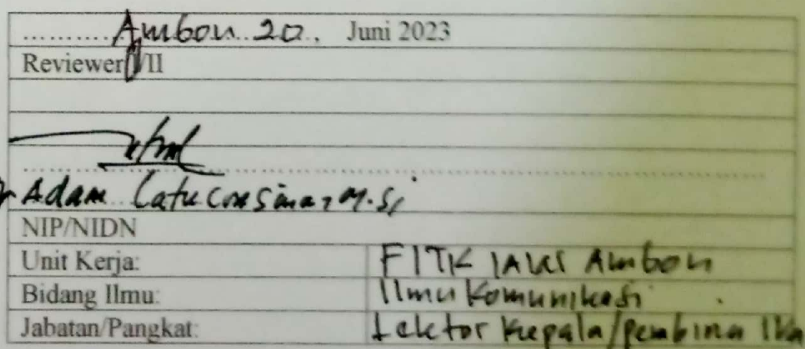 ..........Ambon 20, Juni 2023
Reviewer I/II
Adam Latuconsina, M.Si
NIP/NIDN
Unit Kerja: FITK IAIN Ambon
Bidang Ilmu: Ilmu Komunikasi
Jabatan/Pangkat: Lektor Kepala/Pembina IV/a